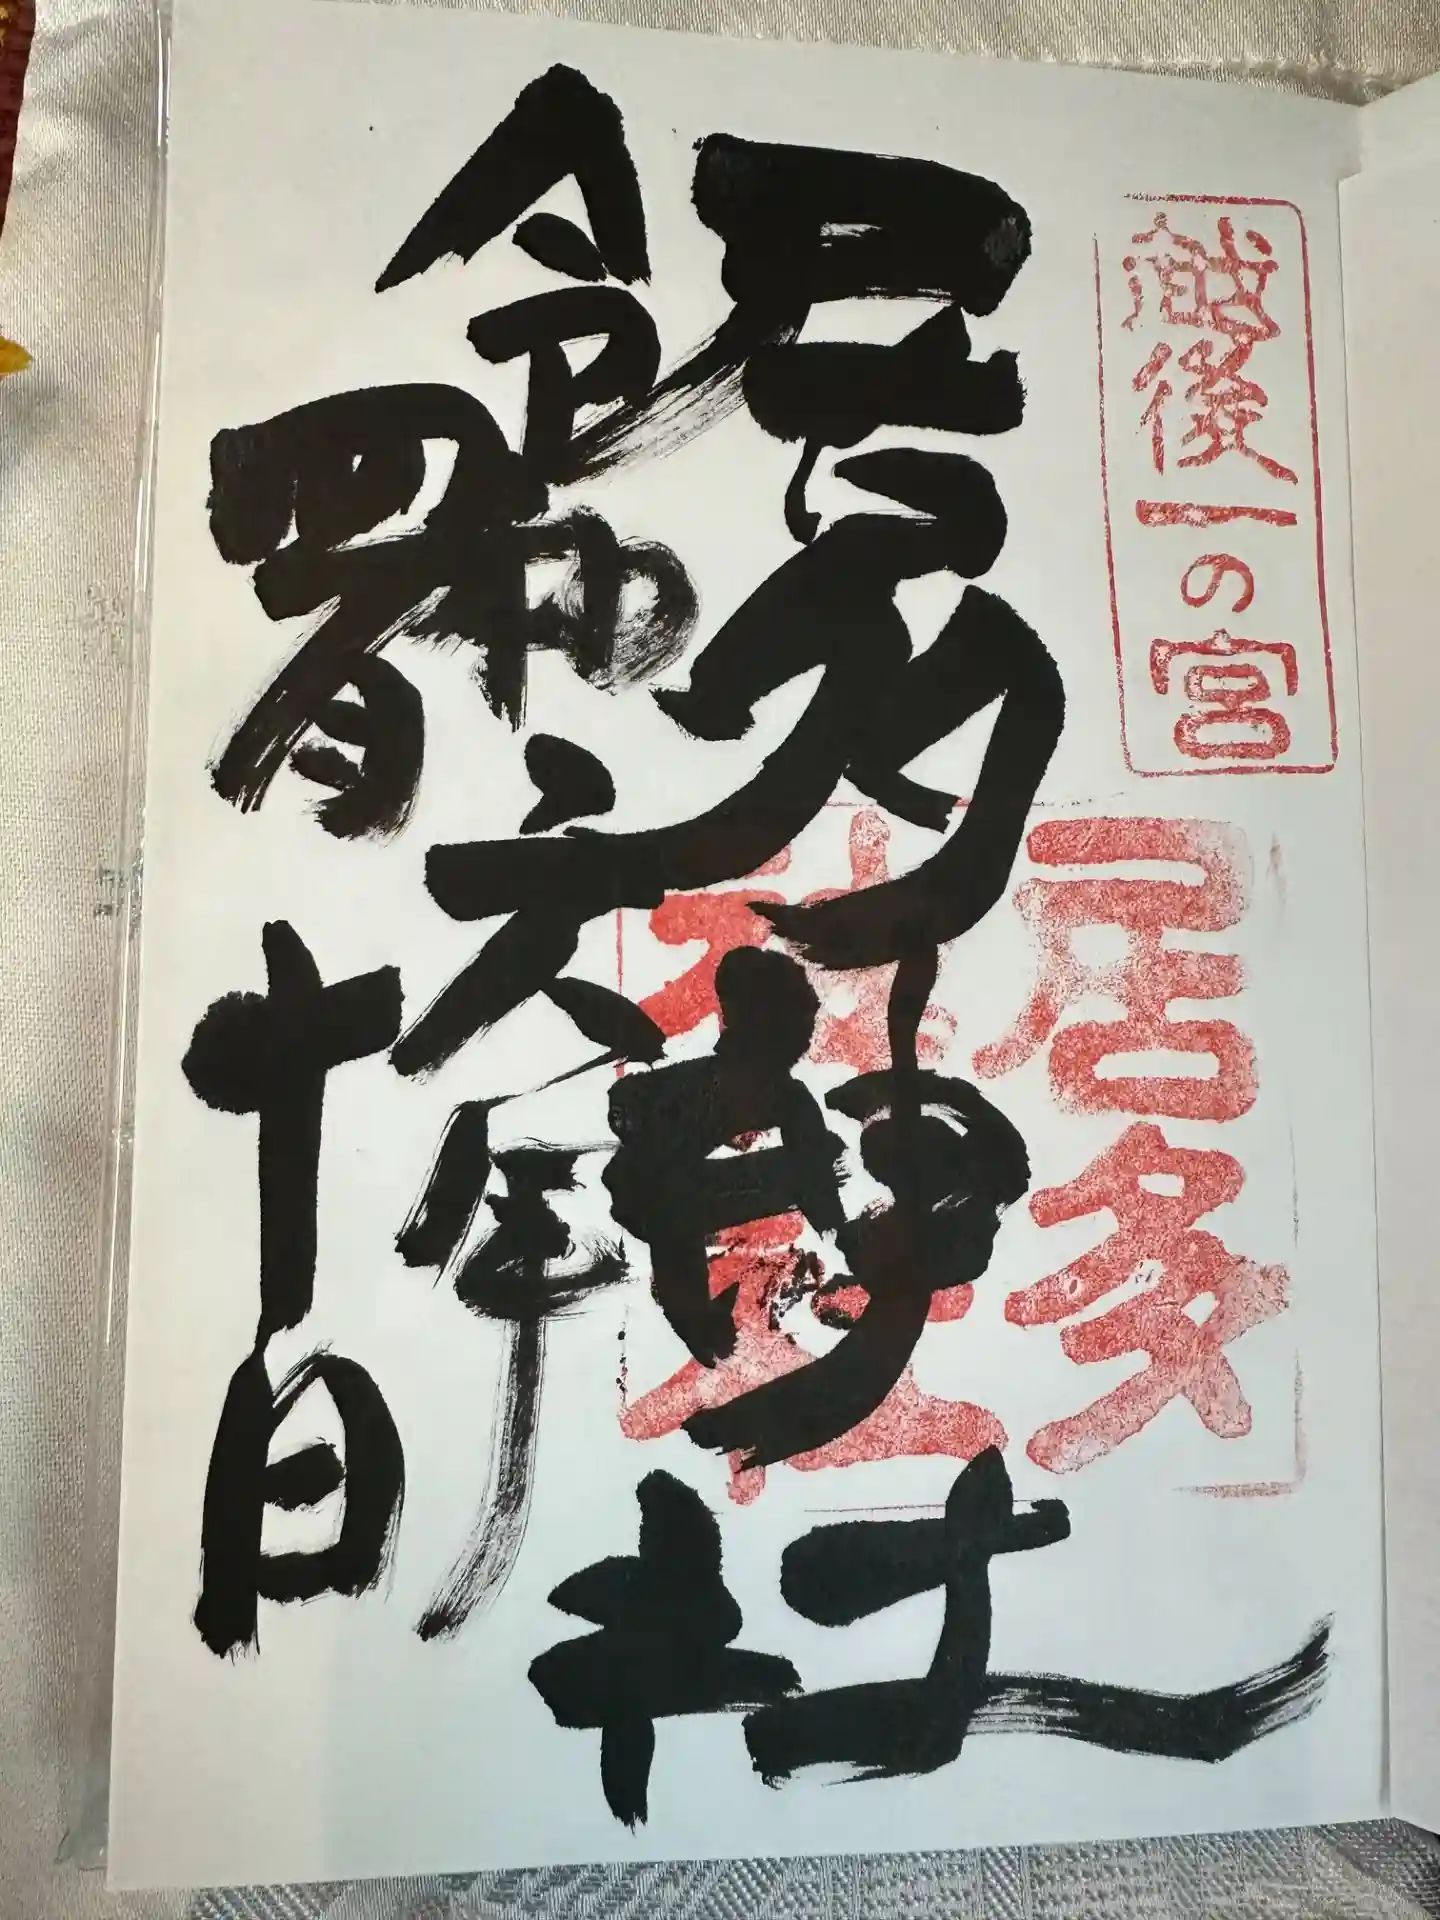 越後一の宮
居多
神社
居多神社
令和六年
四月十日